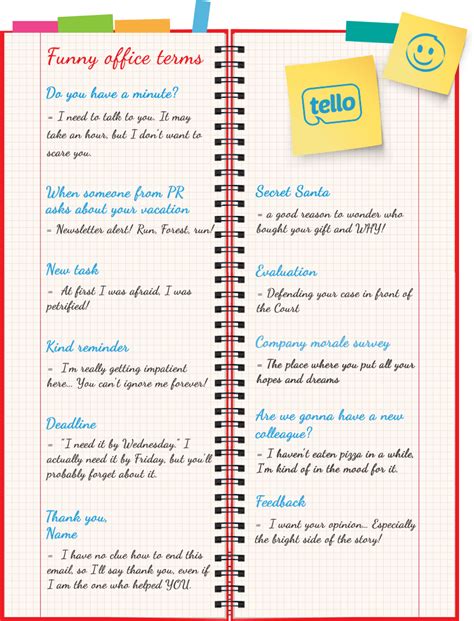 Funny office terms
Do you have a minute?
= I need to talk to you. It
may take an hour, but I don't want to
scare you.
When someone from PR
asks about your vacation
= Newsletter alert! Run, Forest, run!
New task
= At first I was afraid, I was
petrified!
Kind reminder
= I'm really getting impatient
here... You can't ignore me forever!
Deadline
= "I need it by Wednesday." I
actually need it by Friday, but you'll
probably forget about it.
Thank you,
Name
= I have no clue how to end this
email, so I'll say thank you, even if
I am the one who helped YOU.
tello
Secret Santa
= a good reason to wonder who
bought your gift and WHY!
Evaluation
= Defending your case in front of
the Court
Company morale survey
= The place where you put all your
hopes and dreams
Are we gonna have a new
colleague?
= I haven't eaten pizza in a while,
I'm kind of in the mood for it.
Feedback
= I want your opinion... Especially
the bright side of the story!